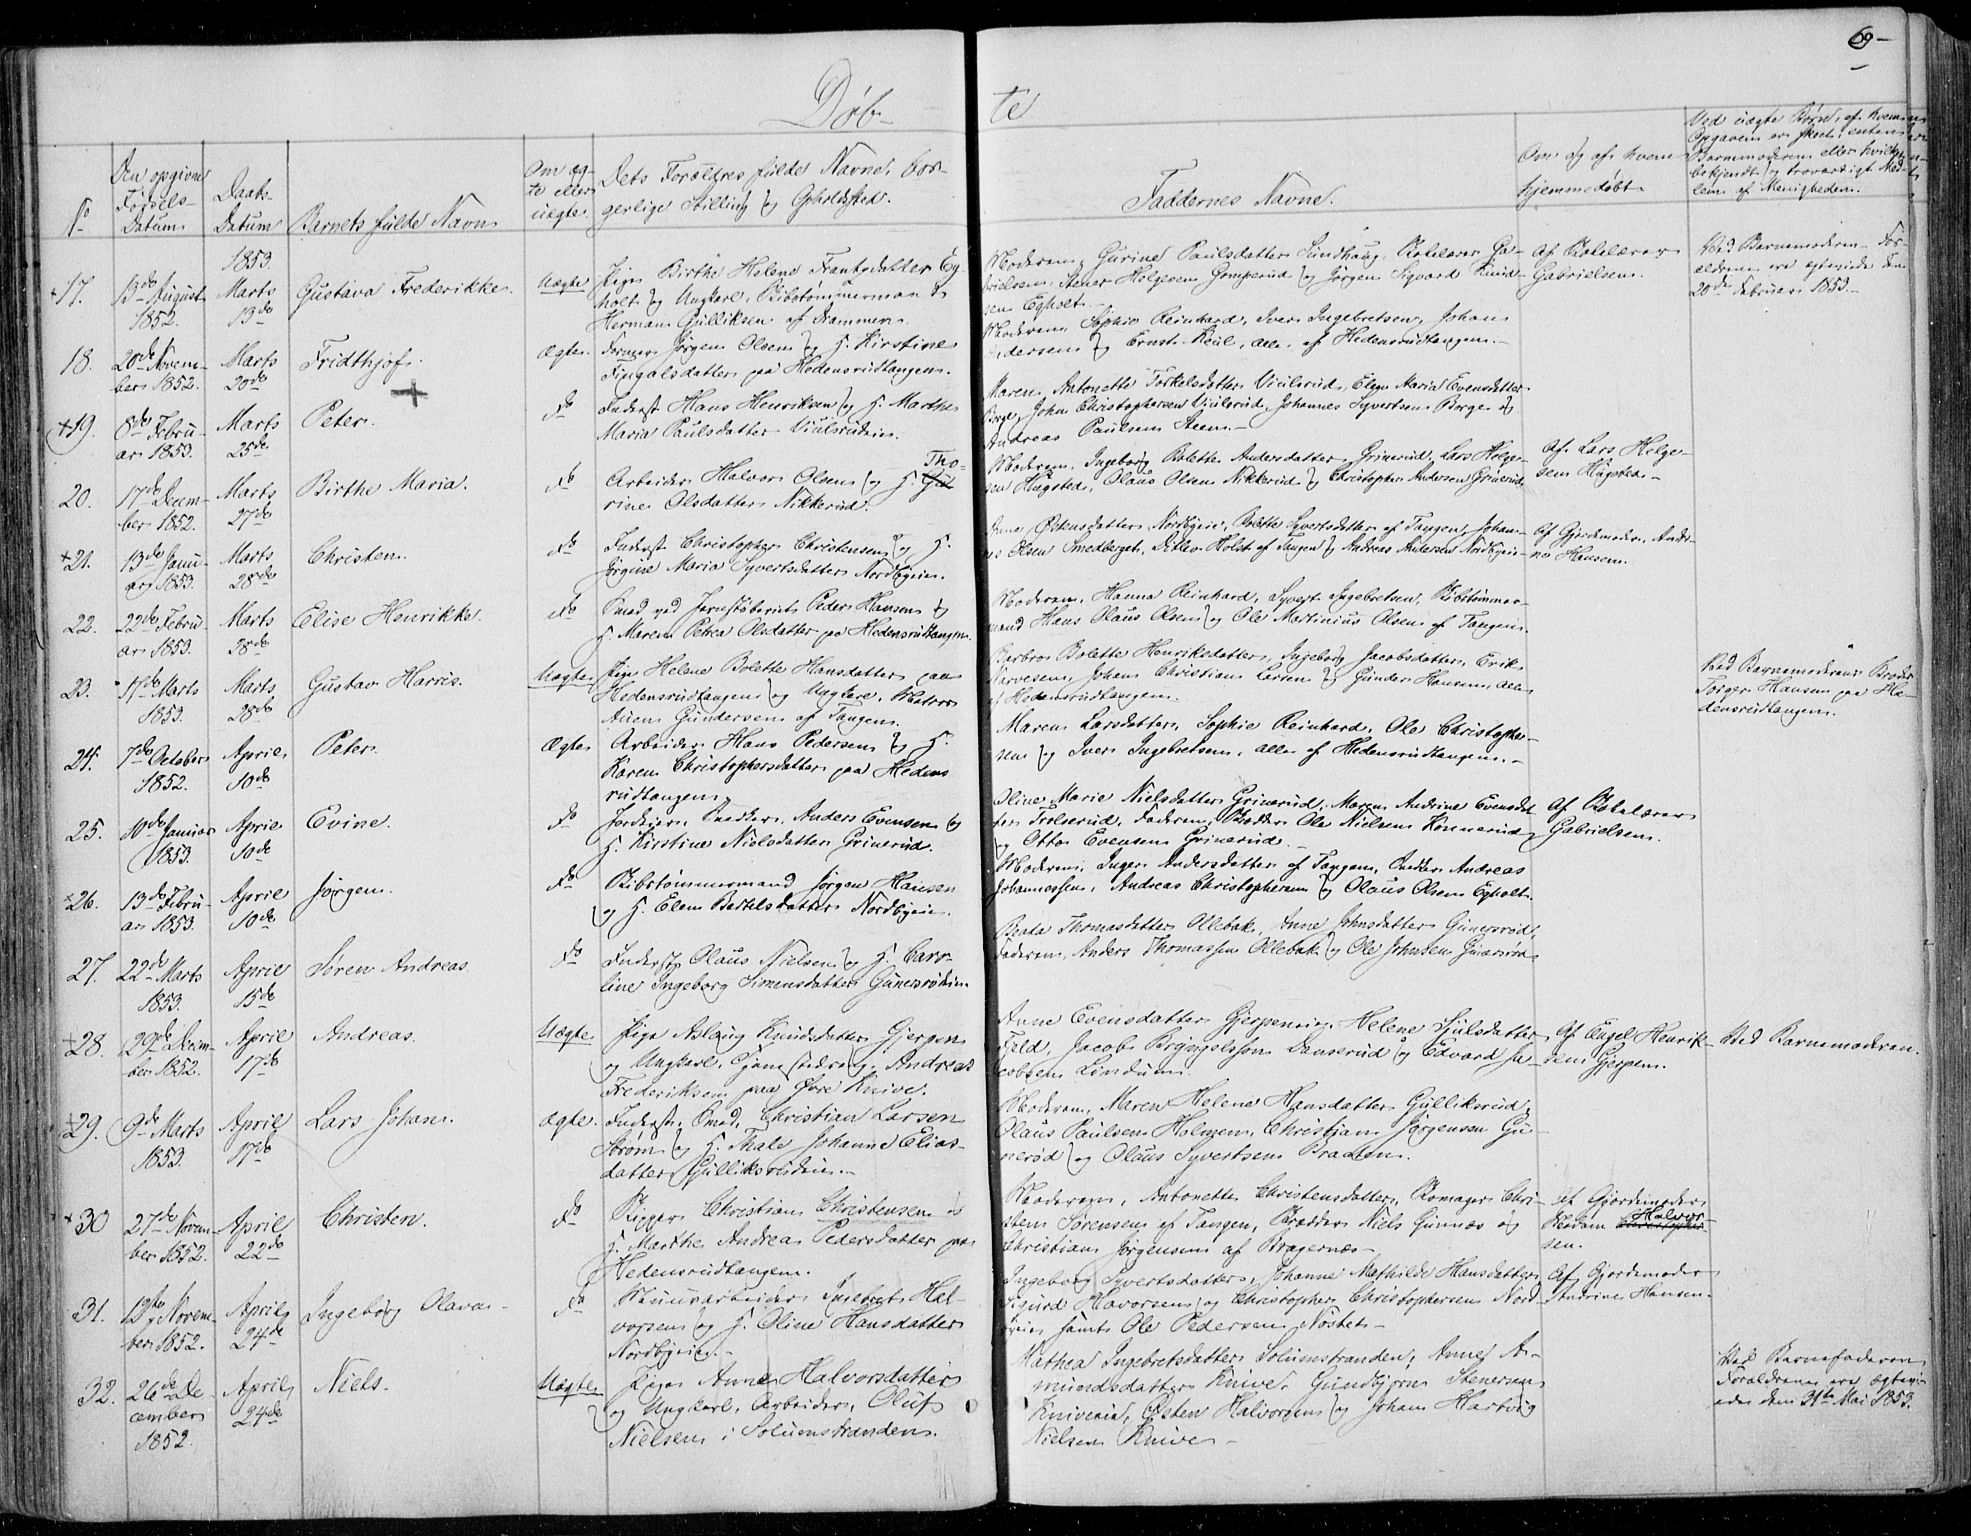 69
Døb-
te
No
Den opgivne
Fødsels
Datum
Daabs-
Datum
Barnets fulde Navn
Om æg-
te eller
uægte
Dets Forældres fulde Navne, bor-
gerlige Stilling og Opholdssted.
Faddernes Navne.
Om og af hvem
hjemmedøbt
Ved uægte Børn, af hvem
Opgaven er skeet, enten
Barnmoderen eller hvilken
bekjendt og troværdigt Med-
lem af Menigheden.
17.
13de August
1852.
1853.
Marts
13de
Gustava Frederikke.
Uægte
Pige Birthe Helene Frantzdatter Eg-
holt og Ungkarl, Skibstømmermand
Herman Gulliksen af Drammen.
Moderen, Gurine Paulsdatter Sundhaug, Skolelærer Ga-
brielsen, Stener Helgesen Gomperud og Jørgen Sigvard Knud-
sen Egholt.
Af Skolelærer
Gabrielsen.
Ved Barnemoderen. For-
ældrene ere ægteviede den
20de Februar 1853.
18.
20de Novem-
ber 1852.
Marts
20de
Fridthjof.
Ægte.
Former Jørgen Olsen og H. Kirstine
Fingalsdatter paa Hedensrudtangen.
Moderen, Sophie Reinhard, Iver Ingebretsen, Johan
Andersen og Ernst Keul, alle af Hedensrudtangen.
19.
8de Febru-
ar 1853.
Marts
25de
Peter.
do
Inderst Hans Henriksen og H. Marthe
Maria Paulsdatter Viulsrudeie.
Maren Antonette Torkelsdatter Viulsrud, Elen Maria Evensdatter
Borge, John Christophersen Viulsrud, Johannes Syvertsen Borge og
Andreas Paulsen Steen.
20.
17de Decem-
ber 1852.
Marts
27de
Birthe Maria.
do
Arbeider Halvor Olsen og H. Tho-
rine Olsdatter Nikkerud.
Moderen, Ingeborg Bolette Andersdatter Grinerud, Lars Helge-
sen Hagsted, Olaus Olsen Nikkerud og Christopher Andersen Grinerud.
Af Lars Helge-
sen Hagsted.
21.
13de Janu-
ar 1853.
Marts
28de
Christen.
do
Inderst Christopher Christensen og H.
Jørgine Maria Syvertsdatter Nordbyeie.
Anne Østensdatter Nordbyeie, Bolette Syvertsdatter af Tangen, Johan-
nes Olsen Smedberget, Ditlev Holst af Tangen og Andreas Andersen Nordbyeie.
Af Gjordemoder Andri-
ne Hansen.
22.
22de Febru-
ar 1853.
Marts
28de
Elise Henrikke.
do
Smed ved Jernstøberiet Peder Hansen og
H. Maren Petrea Olsdatter paa Hedensrudtangen.
Moderen, Hanna Reinhard, Syvert Ingebretsen, Skibstømmer-
mand Hans Olaus Olsen og Ole Martinius Olsen af Tangen.
23.
17de Marts
1853.
Marts
28de
Gustav Harris.
Uægte
Pige Helene Bolette Hansdatter paa
Hedensrudtangen og Ungkarl, Matros
Gundersen af Tangen.
Barbro Bolette Henriksdatter, Ingeborg Jacobsdatter, Erik
Johan Christian Larsen og Gunder Hansen, alle
af Hedensrudtangen.
Ved Barnemoderens Broder
Torger Hansen paa He-
densrudtangen.
24.
7de October
1852.
April
10de
Peter.
Ægte
Arbeider Hans Pedersen og H.
Karen Christophersdatter paa Hedens-
rudtangen.
Maren Larsdatter, Sophie Reinhard, Ole Christopher-
sen og Iver Ingebretsen, alle af Hedensrudtangen.
25.
10de Januar
1853.
April
10de
Evine.
do
Jordeier, Snedker, Anders Evensen og
H. Kirstine Nielsdatter Grinerud.
Oline Marie Nielsdatter Grinerud, Maren Andrine Evensdat-
ter Trolserud, Faderen, Skrædder Ole Nielsen Konnerud
og Otto Evensen Grinerud.
Af Skolelærer
Gabrielsen.
26.
13de Febru-
ar 1853.
April
10de
Jørgen.
do
Skibstømmermand Jørgen Hansen
og H. Elen Bertilsdatter Nordbyeie.
Moderen, Inger Andersdatter af Tangen, Snedker Andreas
Johannessen, Andreas Christophersen og Olaus Olsen Egholt.
27.
22de Marts
1853.
April
15de
Søren Andreas.
do
Inderst Olaus Nielsen og H. Caro-
line Ingeborg Simensdatter Gunersrødeie.
Beate Thomasdatter Ollebak, Anne Johnsdatter Gunersrød,
Faderen, Anders Thomassen Ollebak og Ole Johnsen Gunersrød.
28.
29de Decem-
ber 1852.
April
17de
Andreas.
Uægte
Pige Aslaug Knudsdatter Gjerpen
og Ungkarl, Tjenestedreng, Andreas
Frederiksen paa Øvre Knive.
Anne Evensdatter Gjerpen, Helene Hjulsdatter
Fjeld, Jacob Bryngelssen Danserud og Edvard Ja-
cobsen Lindum.
Af Engel Henrik-
sen Gjerpen.
Ved Barnemoderen.
29.
9de Marts
1853.
April
17de
Lars Johan.
Ægte.
Inderst, Smed, Christian Larsen
Strøm og H. Thale Johanne Elias-
datter Gulliksrudeie.
Moderen, Maren Helene Hansdatter Gulliksrud,
Olaus Paulsen Holmen, Christian Jørgensen Gu-
nerød og Olaus Syvertsen Braaten.
30
27de Novem-
ber 1852.
April
22de
Christen.
do
Rigger Christian Christensen og
H. Marthe Andrea Pedersdatter paa
Hedensrudtangen.
Moderen, Antonette Christensdatter, Skomager Chri-
sten Sørensen af Tangen, Skrædder Niels Gunnæs og
Christian Jørgensen af Bragernæs.
Af Gjordemoder
Madam Halvor-
sen.
31.
12te Novem-
ber 1852.
April
24de
Ingeborg Olava.
do
Muurarbeider Ingebret Hal-
vorsen og H. Oline Hansdatter
Nordbyeie.
Ingeborg Syvertsdatter, Johanne Mathilde Hansdatter,
Sigurd Havorsen og Christopher Christophersen Nord-
byeie samt Ole Pedersen Nøstet.
Af Gjordemoder
Andrine Hansen.
32.
26de De-
cember
1852.
April
24de
Niels.
Uægte
Pige Anne Halvorsdatter
og Ungkarl, Arbeider, Oluf
Nielsen i Solumstranden.
Mathea Ingebretsdatter Solumstranden, Anne A-
mundsdatter Knive, Gundbjørn Stenersen
Kniveeie, Østen Halvorsen og Johan Hartvig
Nielsen Knive.
Ved Barnefaderen
Forældrene ere ægtevi-
ede den 31te Mai 1853.